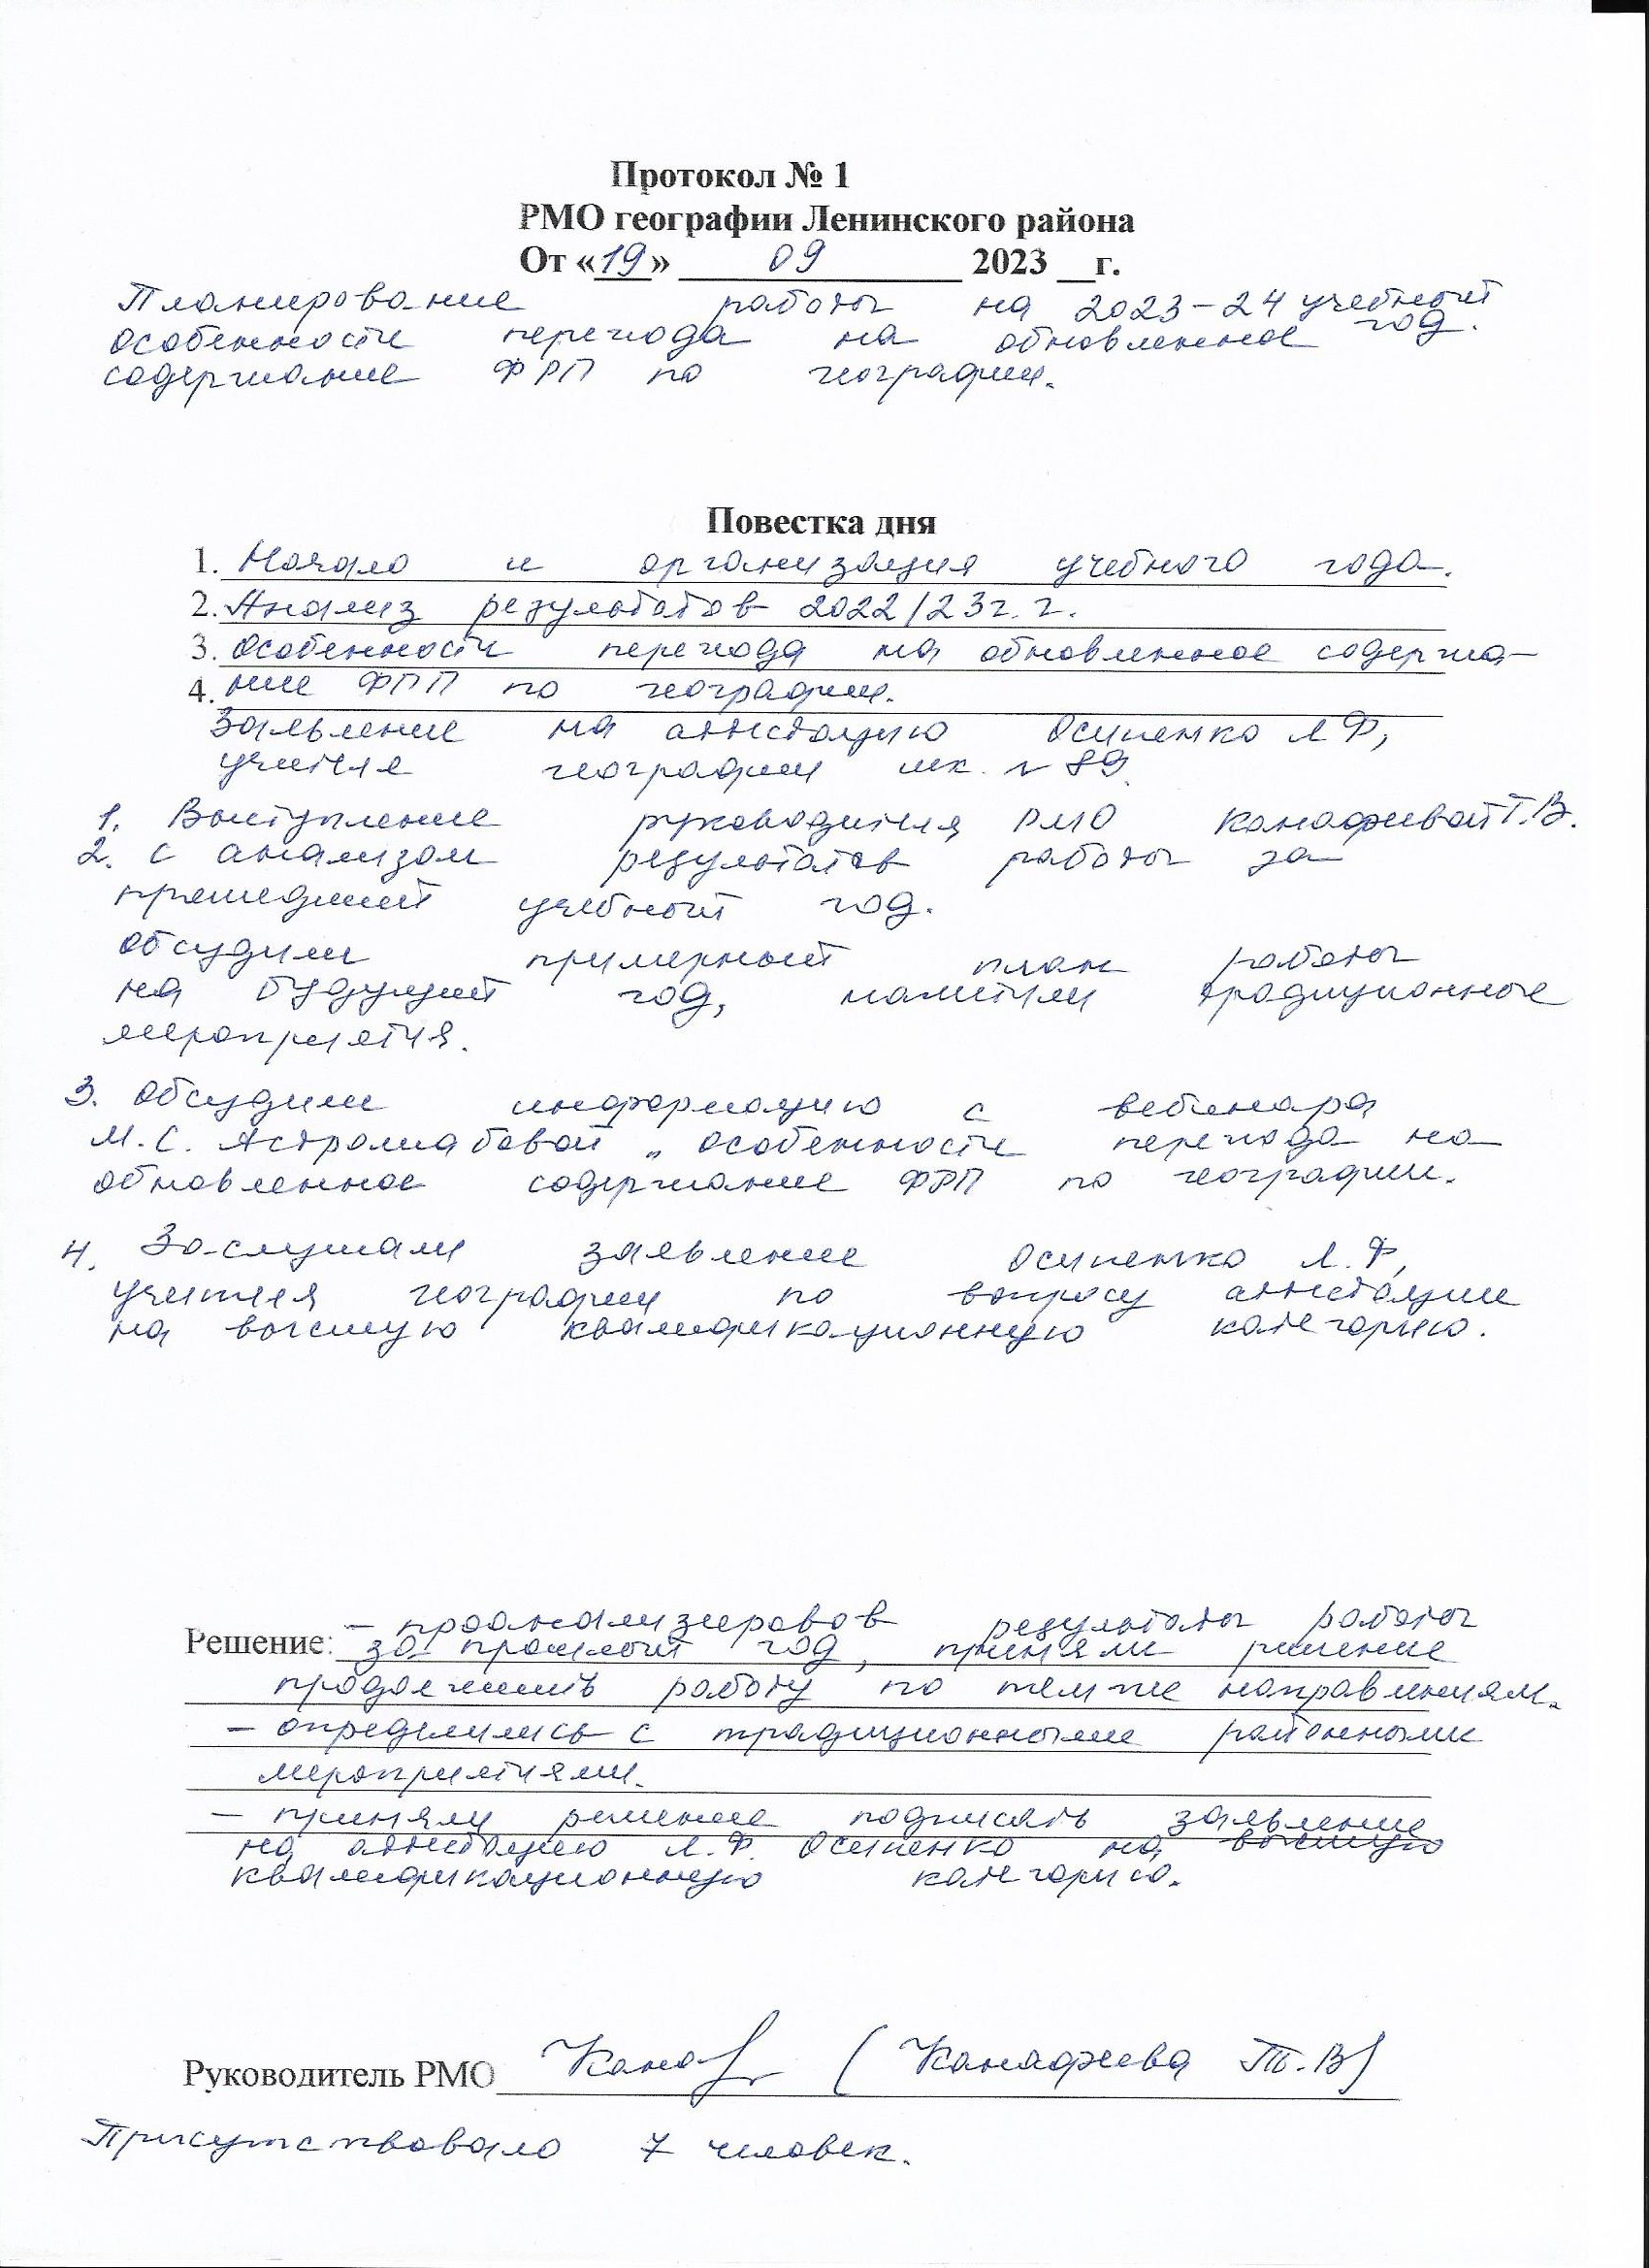 Протокол № 1
РМО географии Ленинского района
От «19» 09 2023 __г.
Планирование работы на 2023-24 учебный год.
особенности перехода на обновленное
содержание ФРП по географии.
Повестка дня
1. Начало и организация учебного года.
2. Анализ результатов 2022/23г.г.
3. Особенности перехода на обновленное содержа-
4. ние ФПП по географии.
Заявление на аттестацию Осипенко Л Ф,
учителя географии шк. N 89.
1. Выступление руководителя РМО Канафиевой Т.В.
2. с анализом результатов работы за
прошедший учебный год.
Обсудили примерный план работы
на будущий год, наметили традиционные
мероприятия.
3. Обсудили информацию с вебинара
М.С. Астролиабовой „ особенности перехода на
обновленное содержание ФРП по географии.
4. Заслушали заявление Осипенко Л.Ф,
учителя географии по вопросу аттестации
на высшую квалификационную категорию.
Решение: - проанализировав результаты работы
за прошлый год, приняли решение
продолжить работу по тем же направлениям.
- определились с традиционными районными
мероприятиями.
- приняли решение подписать заявление
на аттестацию Л.Ф. Осипенко на высшую
квалификационную категорию.
Руководитель РМО (Канафиева Т.В)
Присутствовало 7 человек.